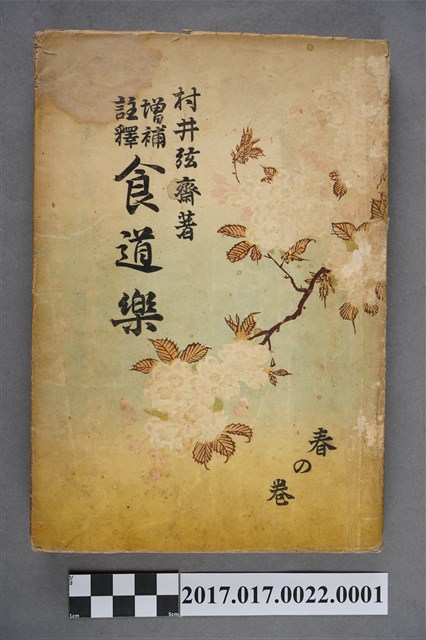 村井弦齋著
增補
註釋
食道樂
春の卷
2017.017.0022.0001
1cm
5cm